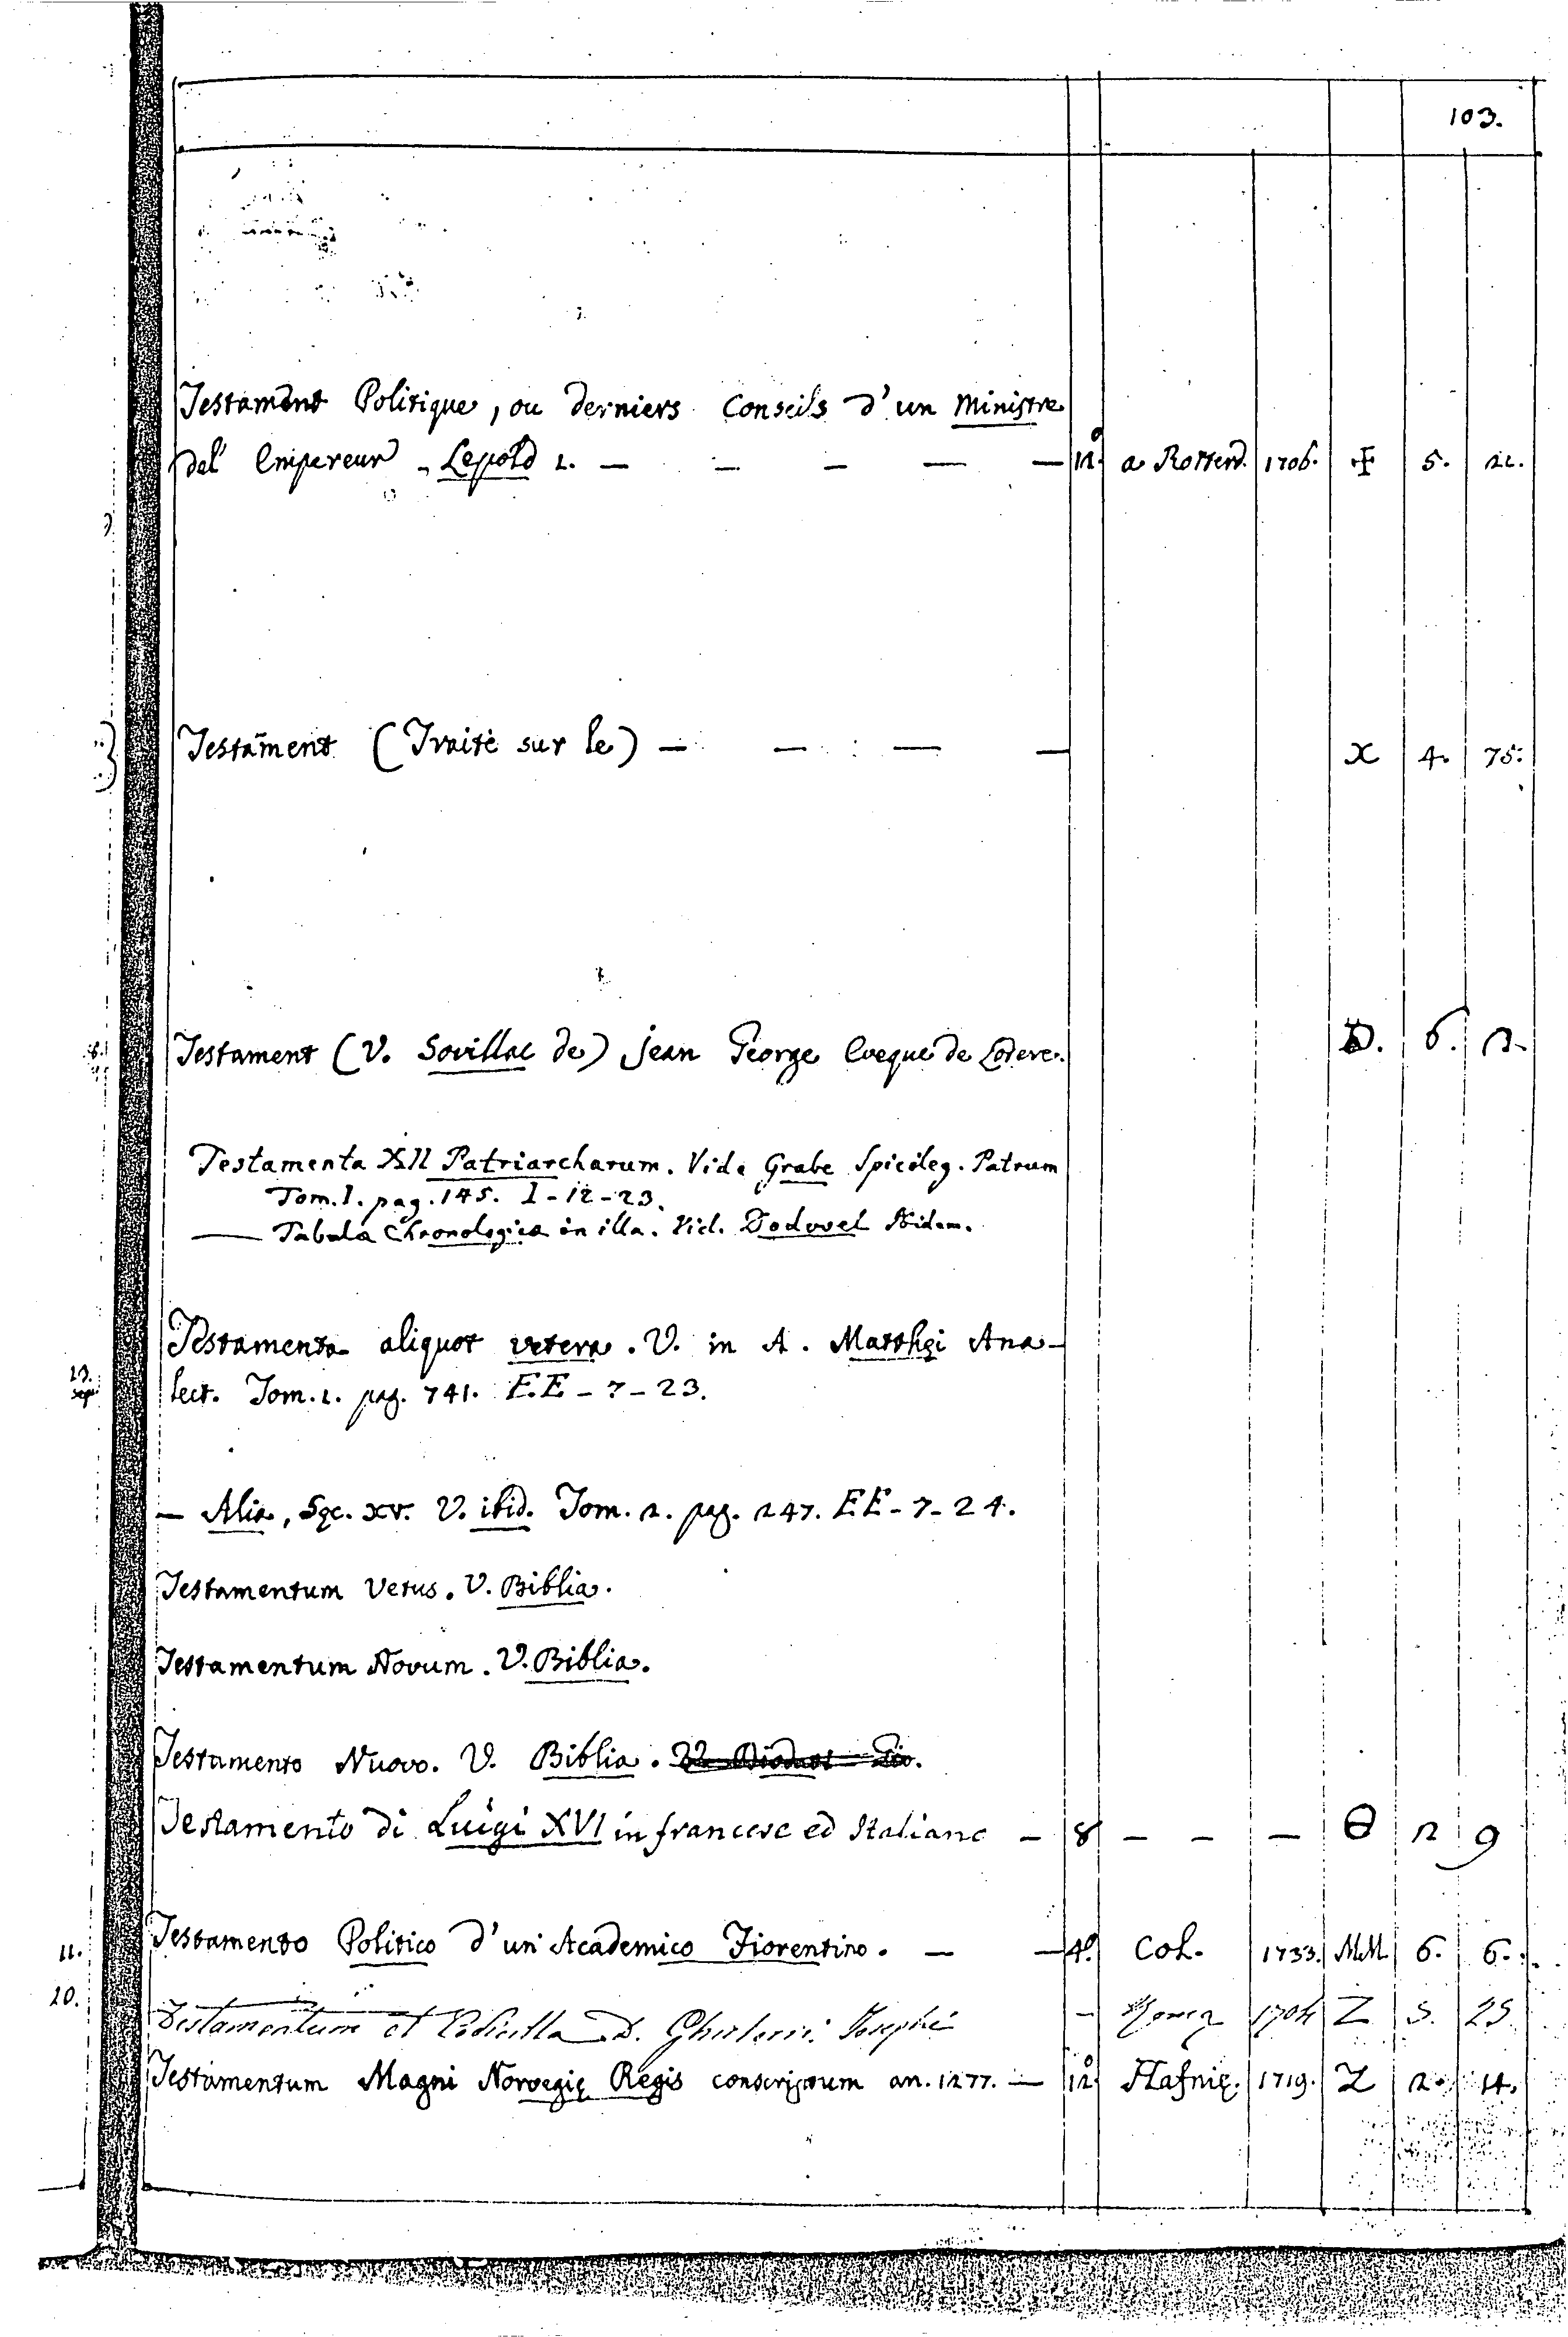 103.
Testament Politique, ou derniers Conseils d'un Ministre
del' Empereur - Lepold 1. — — — — — 12.º a Rotterd. 1706. ✠ 5. 21.
Testament (Traitè sur le) — — — — X 4. 75.
Testament (V. Sovillac de) Jean George Eveque de Lodeve. D. 6. 2.
Testamenta XII Patriarcharum. Vide Grabe Spicileg. Patrum
Tom. I. pag. 145. I - 12 - 23.
— Tabula Chronologica in illa. Vid. Dodwel Ibidem.
Testamenta aliquot vetera. V. in A. Matthęi Ana-
lect. Tom. 1. pag. 741. EE - 7 - 23.
— Alia, Sęc. XV. V. ibid. Tom. 2. pag. 247. EE - 7 - 24.
Testamentum Vetus. V. Biblia.
Testamentum Novum. V. Biblia.
Testamento Nuovo. V. Biblia.
Testamento di Luigi XVI in francese ed Italiano — 8 — — — θ 2 9
Testamento Politico d'un Academico Fiorentino. — — 4.º Col. 1733. MM 6. 6.
Testamentum et Codicilla D. Josephi — 1704 Z 5. 25
Testamentum Magni Norvegię Regis conscriptum an. 1277. — 12.º Hafnię. 1719. Z 2. 14.
23.
11.
10.